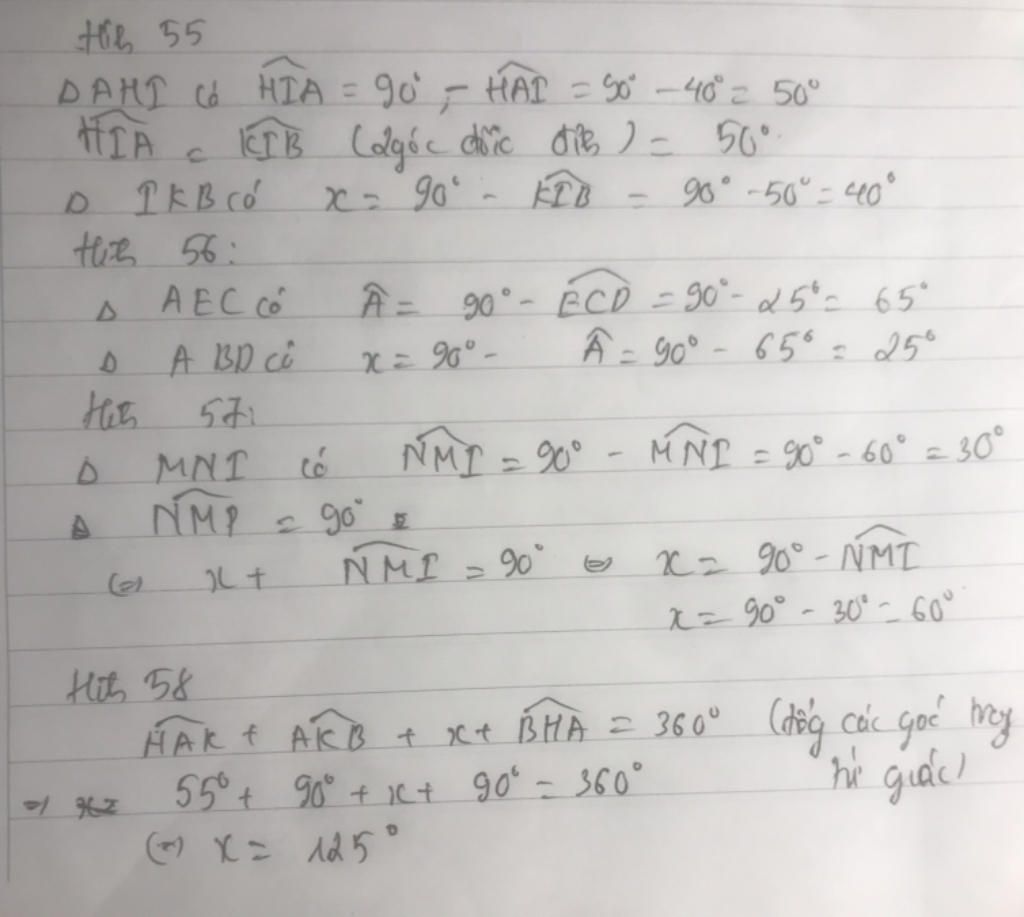 Hình 55
Δ AHI có HIA = 90° - HAI = 90° - 40° = 50°
HIA = KIB (2 góc đối đỉnh) = 50°
Δ IKB có x = 90° - KIB = 90° - 50° = 40°
Hình 56:
Δ AEC có Â = 90° - ECD = 90° - 25° = 65°
Δ ABD có x = 90° - Â = 90° - 65° = 25°
Hình 57:
Δ MNI có NMI = 90° - MNI = 90° - 60° = 30°
Δ NMP = 90°
(=) x + NMI = 90° (=) x = 90° - NMI
x = 90° - 30° = 60°
Hình 58
HAK + AKB + x + BHA = 360° (tổng các góc trong
tứ giác)
=) 55° + 90° + x + 90° = 360°
(=) x = 125°